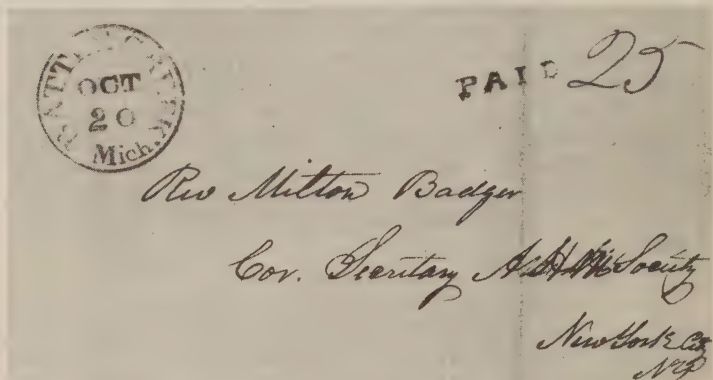 BATTLE CREEK
OCT
20
Mich.
PAID 25
Rev Milton Badger
Cor. Secretary A. H. M. Society
New York City
N.Y.